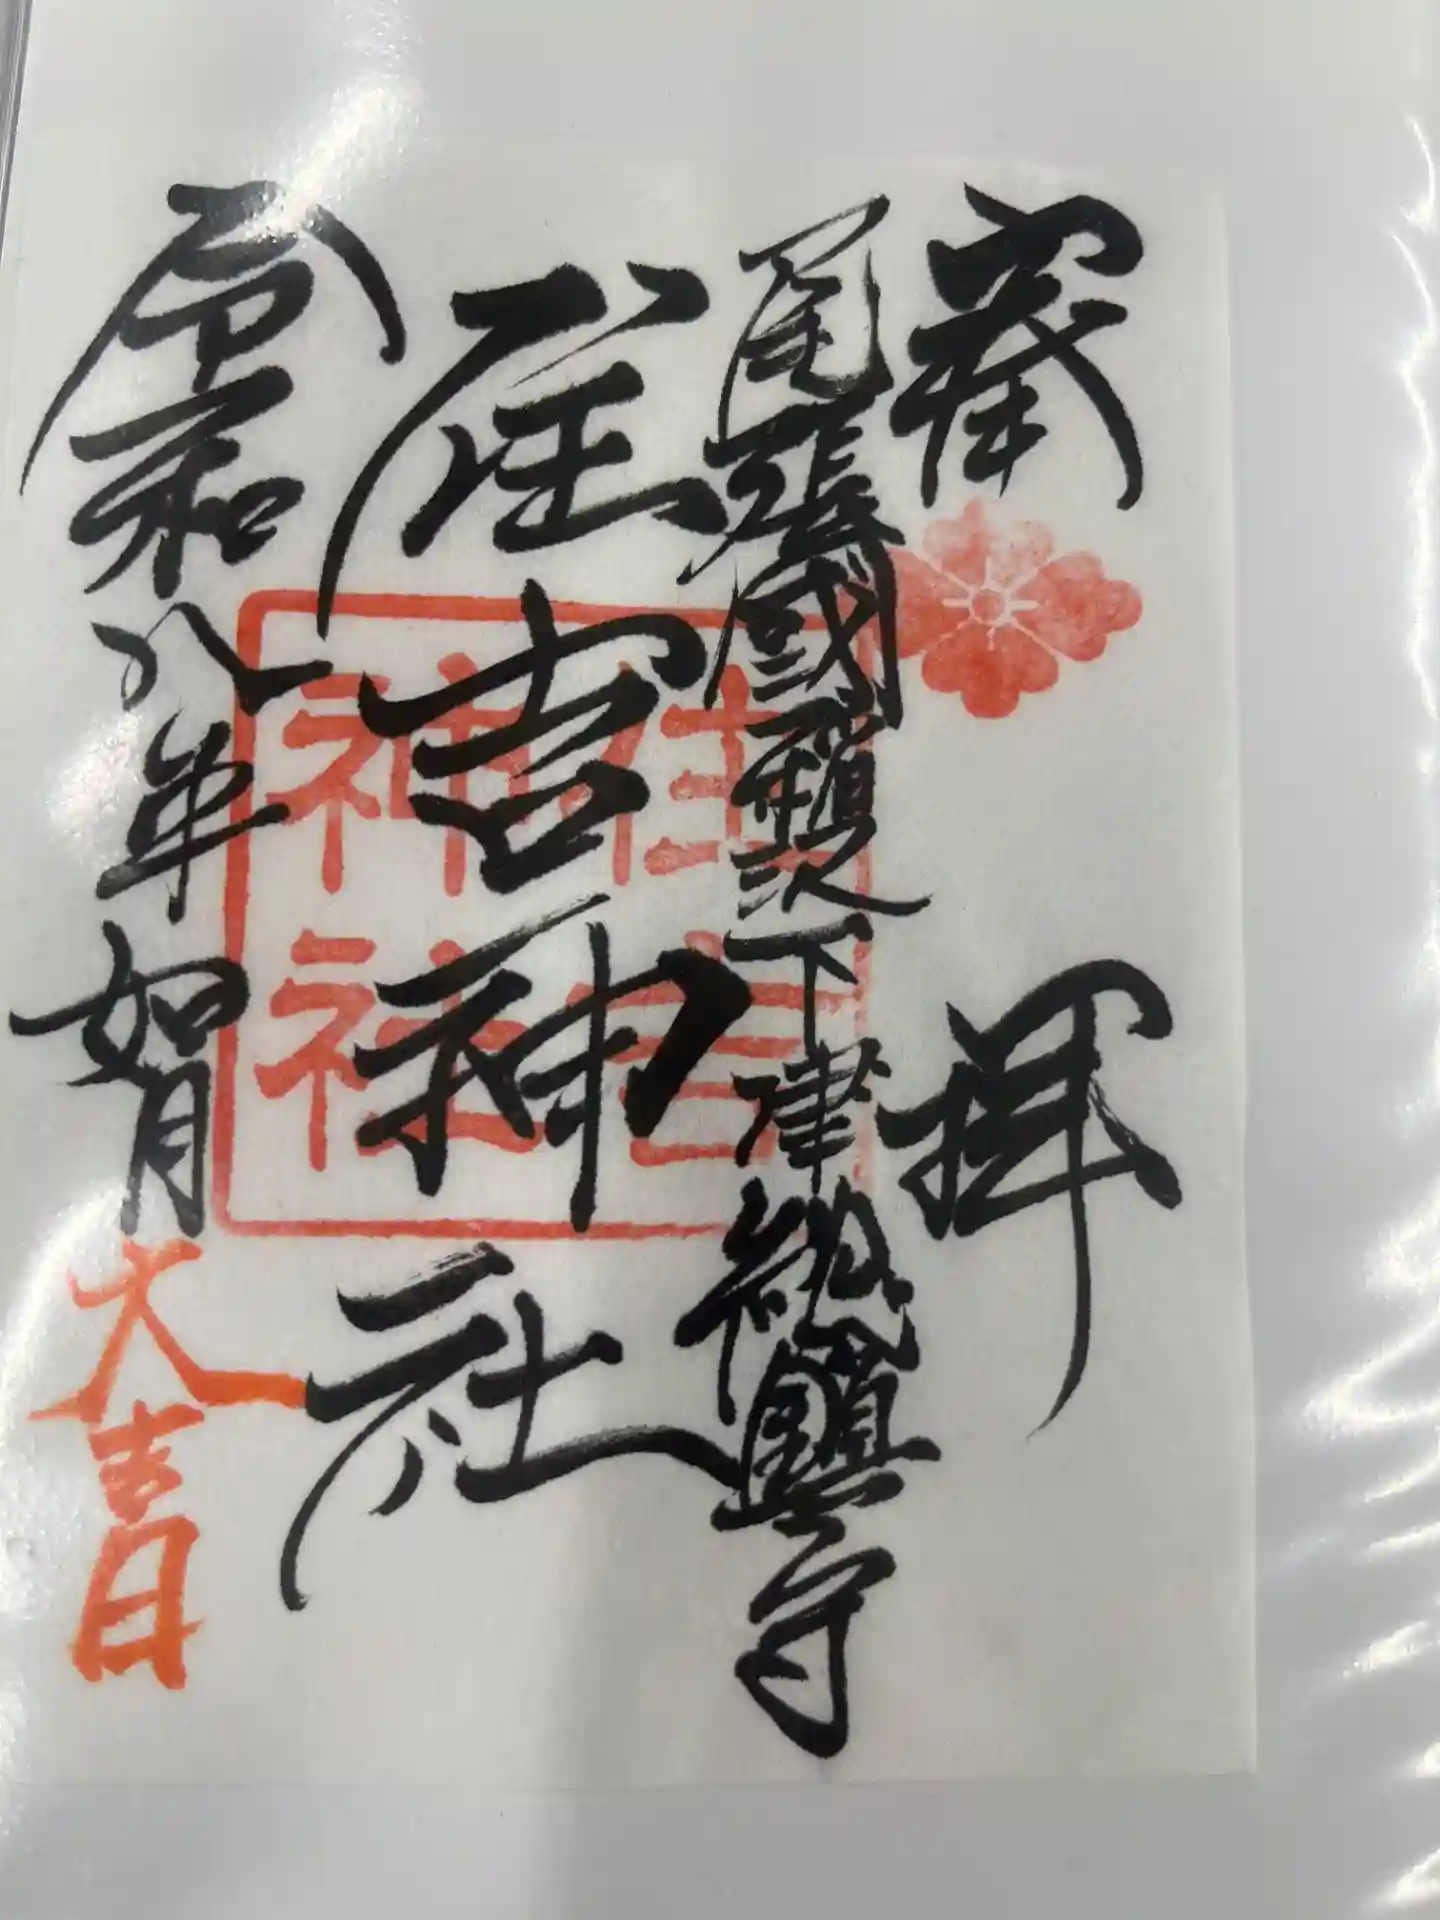 奉拝
尾張國下津総鎮守
住吉神社
令和八年如月大吉日
住吉神社